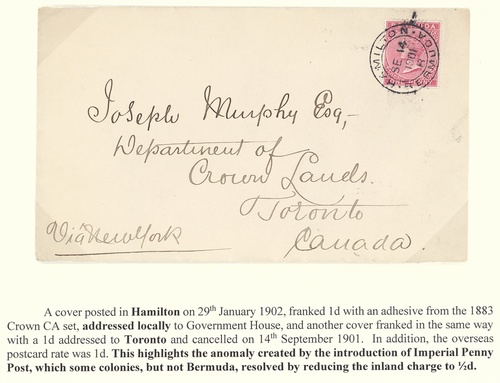 HAMILTON BERMUDA
SE 14
1901
Joseph Murphy Esq,-
Department of
Crown Lands.
Toronto
Canada.
Via New York
A cover posted in Hamilton on 29th January 1902, franked 1d with an adhesive from the 1883
Crown CA set, addressed locally to Government House, and another cover franked in the same way
with a 1d addressed to Toronto and cancelled on 14th September 1901. In addition, the overseas
postcard rate was 1d. This highlights the anomaly created by the introduction of Imperial Penny
Post, which some colonies, but not Bermuda, resolved by reducing the inland charge to ½d.